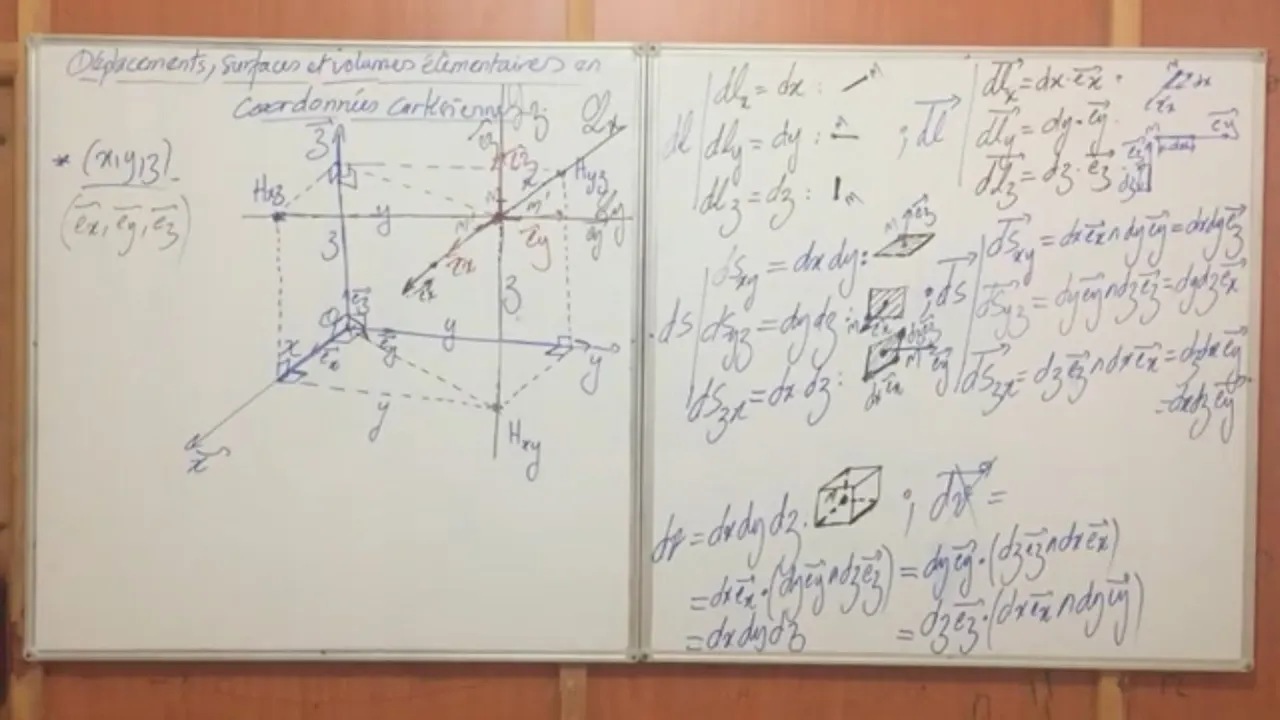 Déplacements, Surfaces et volumes élémentaires en
Coordonnées Cartésiennes.
* (x,y,z).
(e⃗x, e⃗y, e⃗z)
z⃗
Hxz
y
z
x
Hyz
M
e⃗z
e⃗y
e⃗x
z
O
e⃗z
e⃗x
e⃗y
x
y
y
y
x⃗
Hxy
dl | dlx = dx :
dly = dy :
dlz = dz :
; d⃗l | d⃗lx = dx·e⃗x
d⃗ly = dy·e⃗y
d⃗lz = dz·e⃗z
ds | dsxy = dxdy :
dsyz = dydz :
dszx = dxdz :
; d⃗s | d⃗sxy = dxe⃗x∧dye⃗y = dxdye⃗z
d⃗syz = dye⃗y∧dze⃗z = dydze⃗x
d⃗szx = dze⃗z∧dxe⃗x = dzdxe⃗y
= dxdze⃗y
dv = dxdydz.
; d⃗v =
= dxe⃗x·(dye⃗y∧dze⃗z) = dye⃗y·(dze⃗z∧dxe⃗x)
= dxdydz = dze⃗z·(dxe⃗x∧dye⃗y)